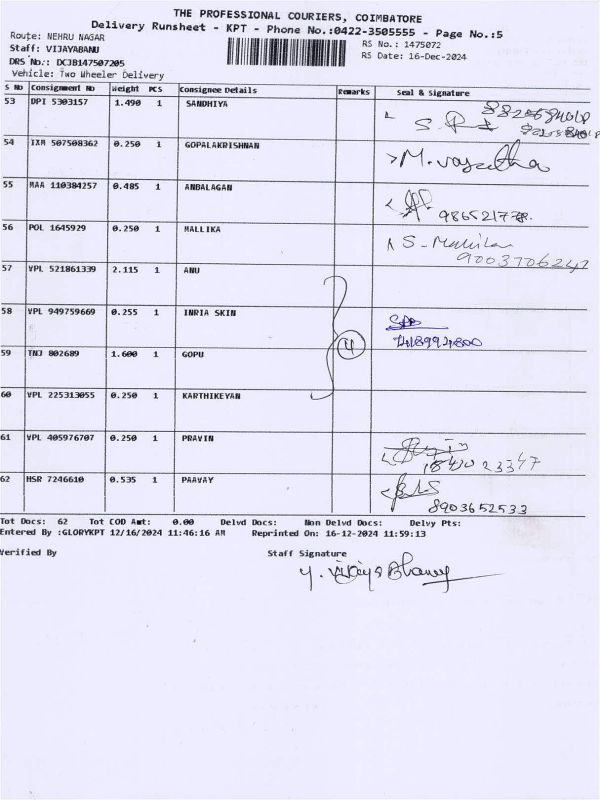 THE PROFESSIONAL COURIERS, COIMBATORE
Delivery Runsheet - KPT - Phone No.:0422-3505555 - Page No.:5
Route: NEHRU NAGAR
RS No.: 1475072
Staff: VIJAYABANU
RS Date: 16-Dec-2024
DRS No.: DCJB147507205
Vehicle: Two Wheeler Delivery
S No Consignment No Weight PCS Consignee Details Remarks Seal & Signature
53 DPI 5303157 1.490 1 SANDHIYA
54 IXM 507508362 0.250 1 GOPALAKRISHNAN
55 MAA 110384257 0.485 1 ANBALAGAN
56 POL 1645929 0.250 1 MALLIKA S-Mallika
9003706247
57 VPL 521861339 2.115 1 ANU
58 VPL 949759669 0.255 1 INRIA SKIN
4
59 TNJ 802689 1.600 1 GOPU
60 VPL 225313055 0.250 1 KARTHIKEYAN
61 VPL 405976707 0.250 1 PRAVIN
62 HSR 7246610 0.535 1 PAAVAY
8903652533
Tot Docs: 62 Tot COD Amt: 0.00 Delvd Docs: Non Delvd Docs: Delvy Pts:
Entered By :GLORYKPT 12/16/2024 11:46:16 AM Reprinted On: 16-12-2024 11:59:13
Verified By Staff Signature